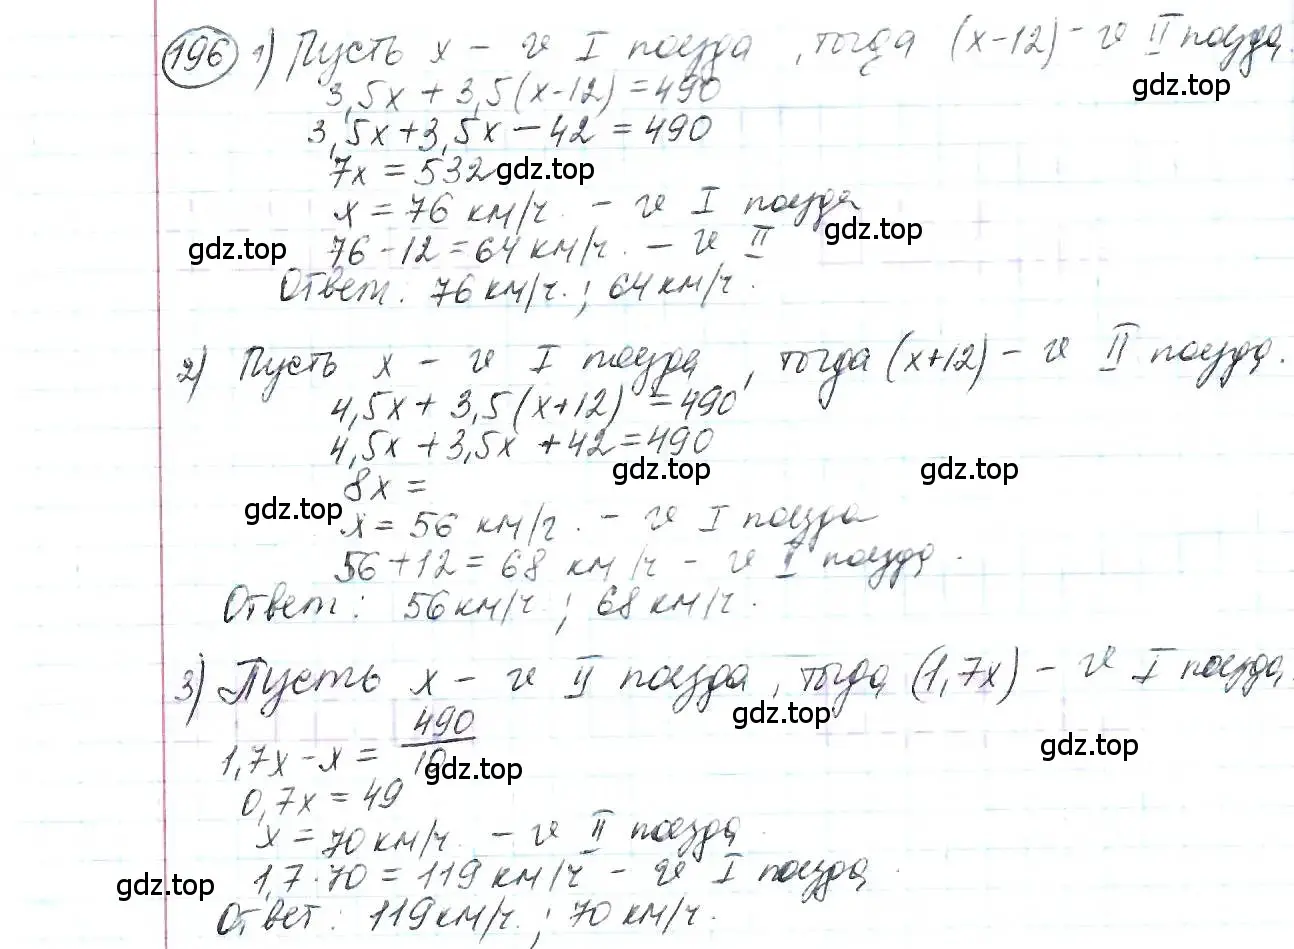 196 1) Пусть x – v I поезда, тогда (x-12) – v II поезда.
gdz.top
3,5x + 3,5(x-12) = 490
3,5x+3,5x – 42 = 490
7x = 532 gdz.top
x = 76 км/ч. – v I поезда
gdz.top
gdz.top 76 – 12 = 64 км/ч. – v II
Ответ: 76 км/ч.; 64 км/ч.
2) Пусть x – v I поезда, тогда (x+12) – v II поезда.
4,5x + 3,5(x+12) = 490
4,5x + 3,5x + 42 = 490
gdz.top gdz.top
8x =
gdz.top
x = 56 км/ч. – v I поезда
56 + 12 = 68 км/ч – v I поезда.
Ответ: 56 км/ч.; 68 км/ч.
3) Пусть x – v II поезда, тогда (1,7x) – v I поезда.
gdz.top
1,7x – x = 490/10
gdz.top gdz.top
0,7x = 49
x = 70 км/ч. – v II поезда.
1,7·70 = 119 км/ч – v I поезда.
gdz.top
Ответ: 119 км/ч.; 70 км/ч.